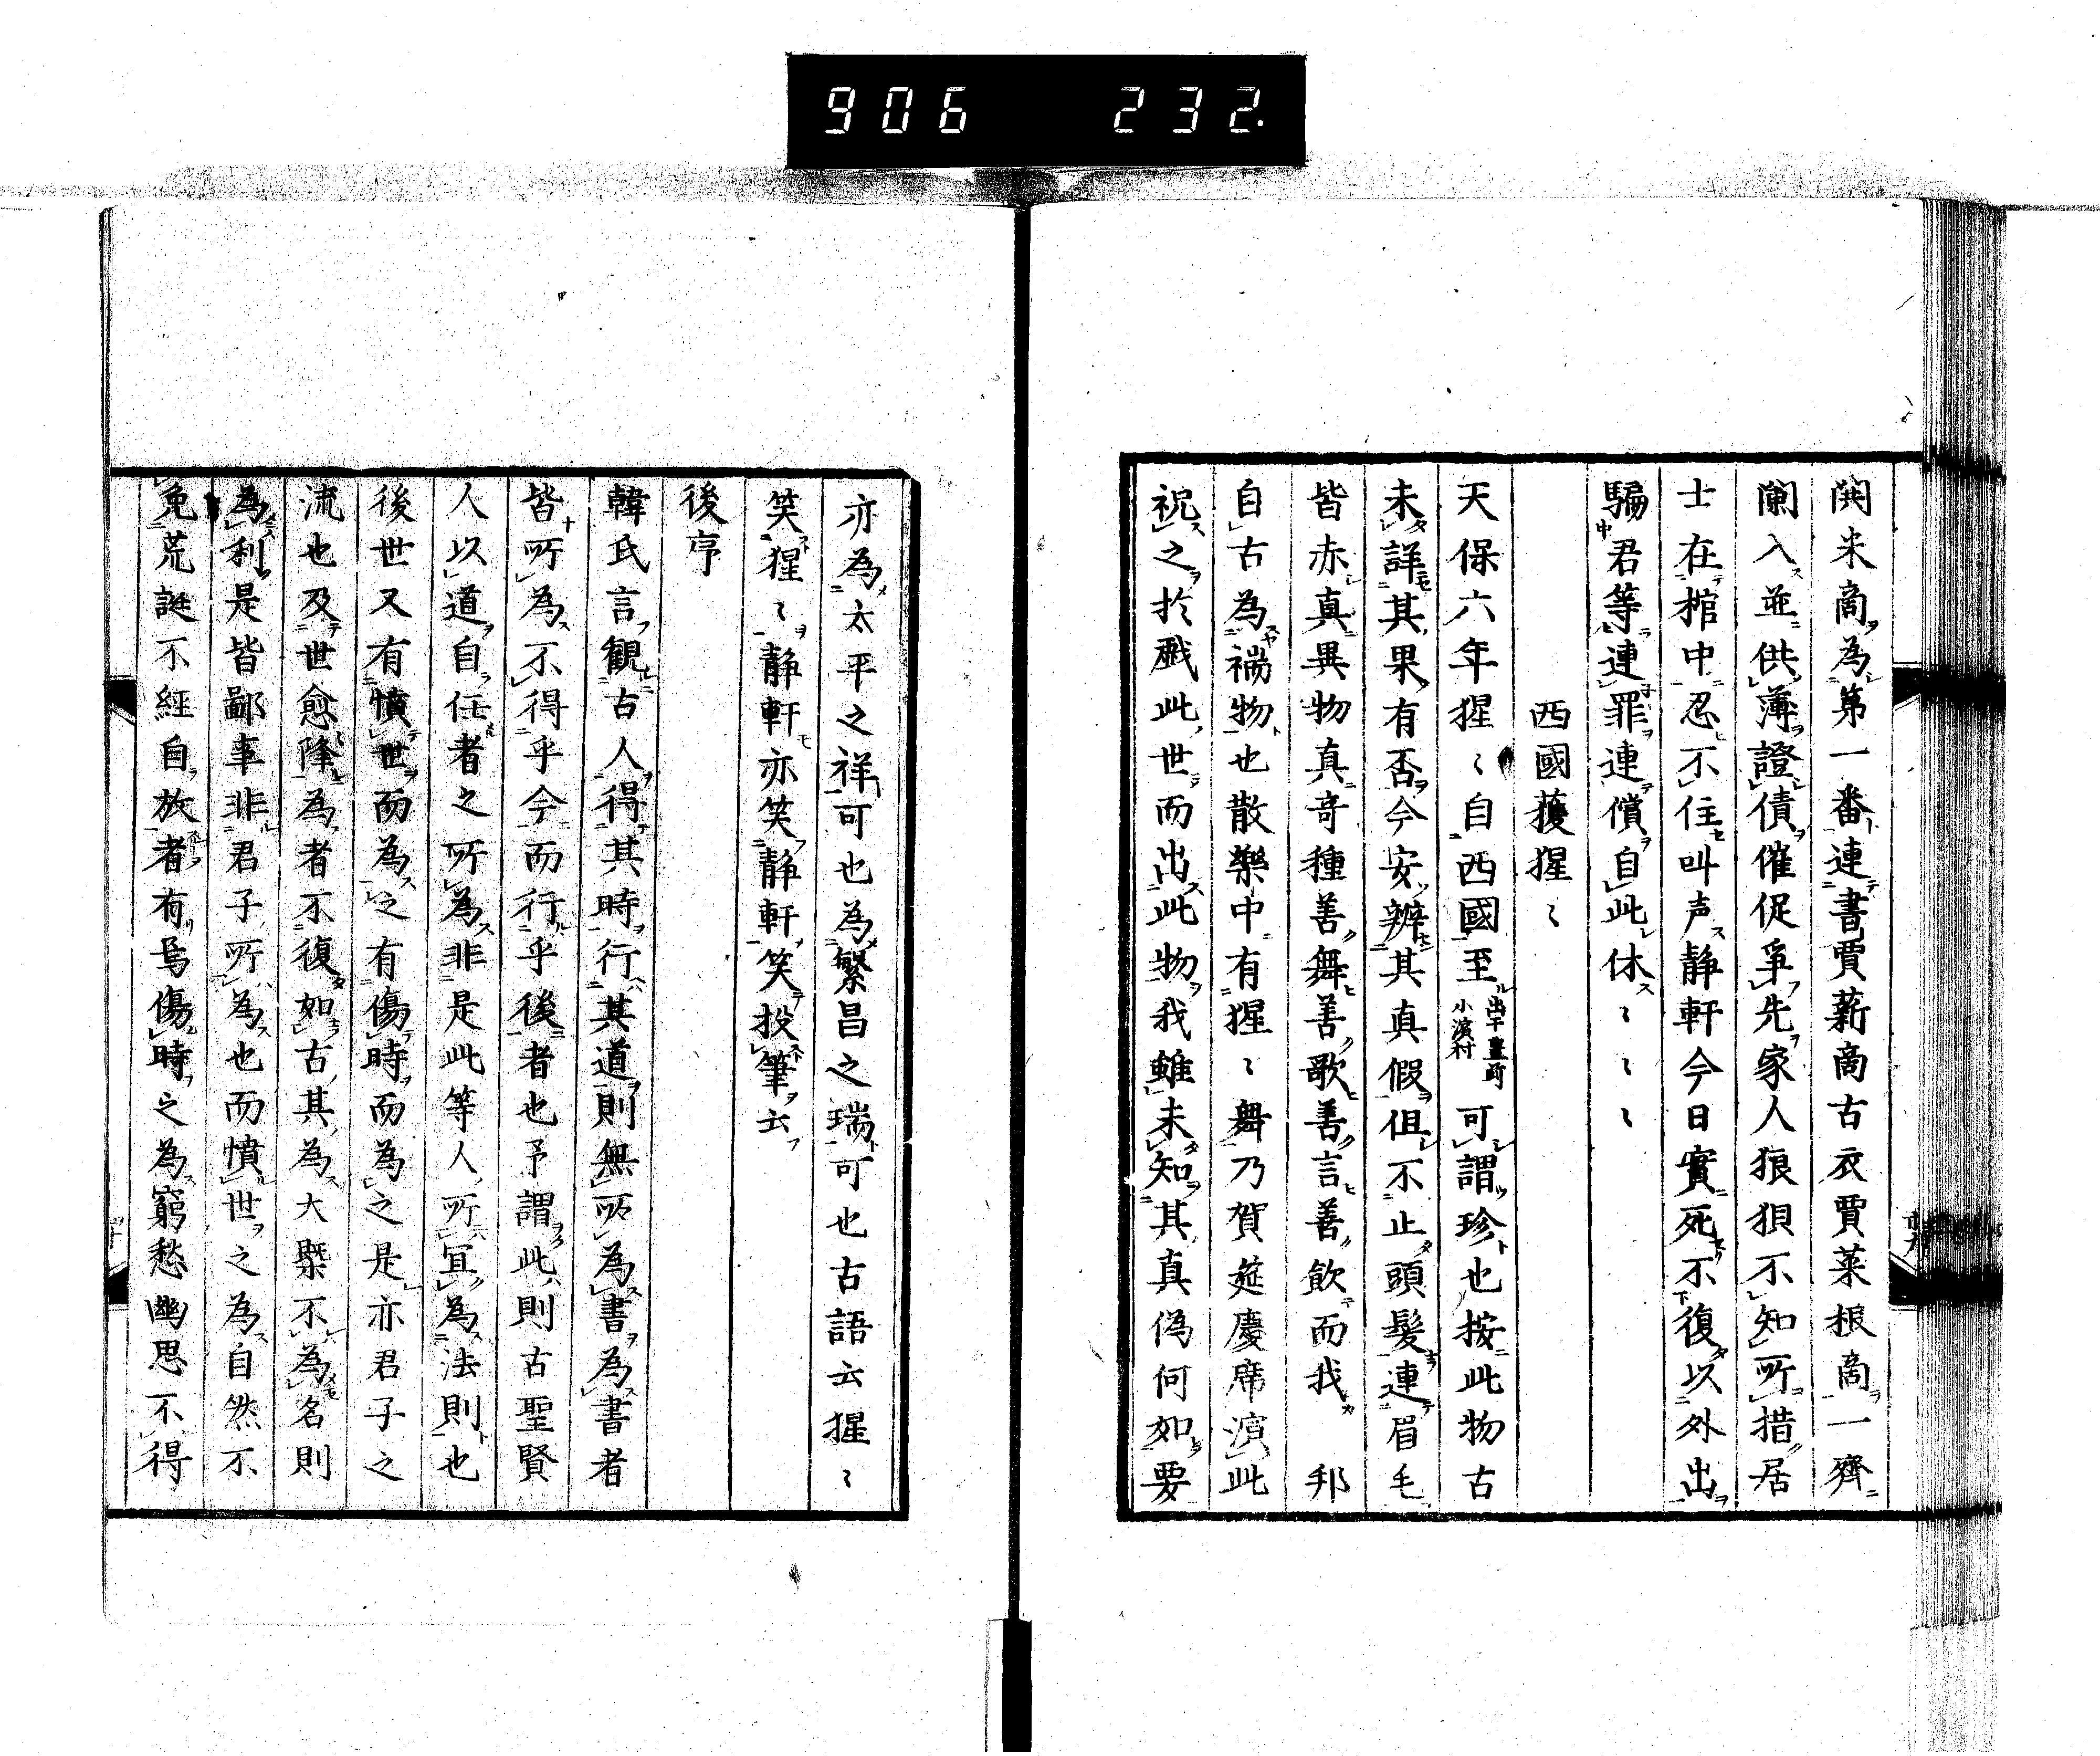 906 232.
開米商為第一番連書賈薪商古衣賈菜根商一齊
闌入並供簿證債催促爭先家人狼狽不知所措居
士在棺中忍不住叫声静軒今日實死不復以外出
騙君等連罪連償自此休〻〻〻
西國獲猩〻
天保六年猩〻自西國至
出于豊前
小濱村
可謂珍也按此物古
未詳其果有否今安辨其真假但不止頭髮連眉毛
皆赤真異物真奇種善舞善歌善言善飲而我 邦
自古為瑞物也散樂中有猩〻舞乃賀筵慶席演此
祝之於戲此世而出此物我雖未知其真偽何如要
亦為太平之祥可也為繁昌之瑞可也古語云猩〻
笑猩〻静軒亦笑静軒笑投筆云
後序
韓氏言觀古人得其時行其道則無所為書為書者
皆所為不得乎今而行乎後者也予謂此則古聖賢
人以道自任者之所為非是此等人所宜為法則也
後世又有憤世而為之有傷時而為之是亦君子之
流也及世愈降為者不復如古其為大槩不為名則
為利是皆鄙事非君子所為也而憤世之為自然不
免荒誕不經自放者有焉傷時之為窮愁幽思不得